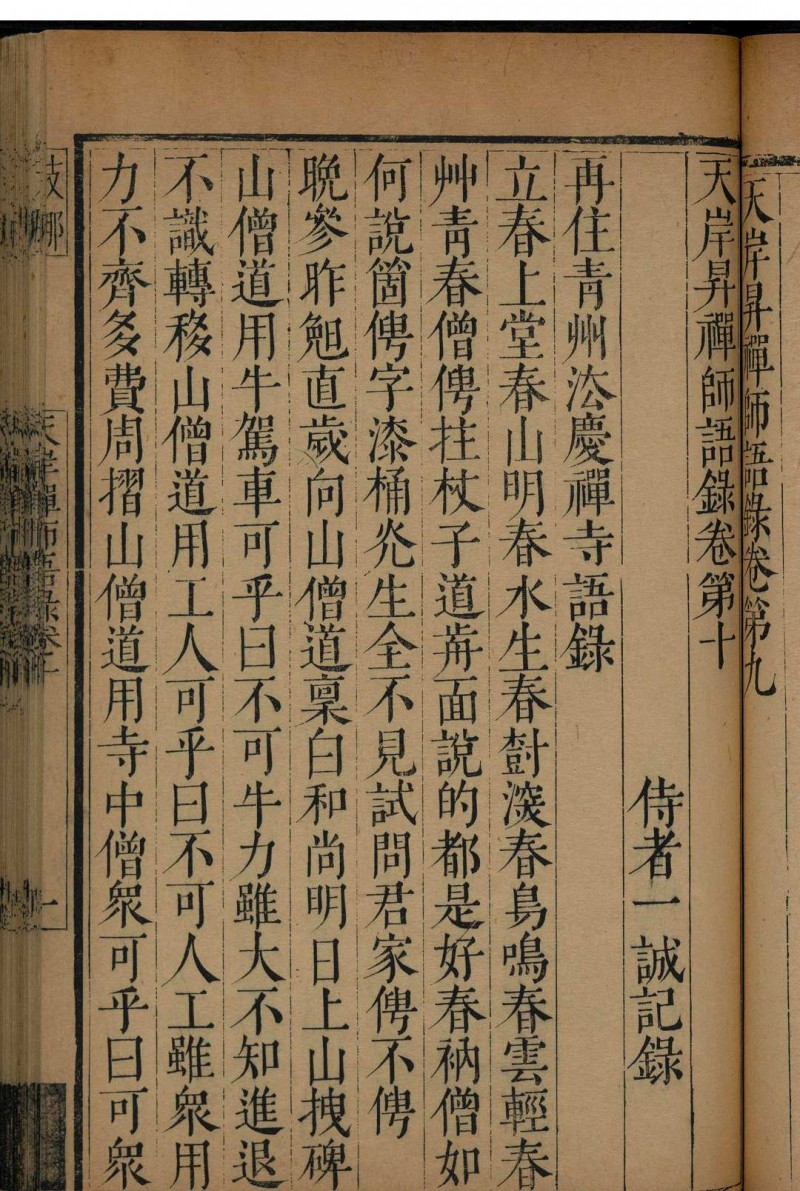 天岸昇禪師語錄卷第九
天岸昇禪師語錄卷第十
侍者一誠記錄
再住青州法慶禪寺語錄
立春上堂春山明春水生春對深春鳥鳴春雲輕春
艸青春僧俜拄杖子道前面說的都是好春衲僧如
何說箇俜字漆桶光生全不見試問君家俜不俜
晚參昨晚直歲向山僧道稟白和尚明日上山拽碑
山僧道用牛駕車可乎曰不可牛力雖大不知進退
不識轉移山僧道用工人可乎曰不可人工雖衆用
力不齊多費周摺山僧道用寺中僧衆可乎曰可衆